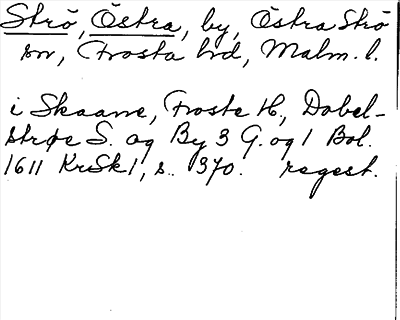 Strö, Östra, by, Östra Strö
sn, Frosta hrd, Malm. l.
i Skaane, Froste H., Dobel-
strøe S. og By 3 G. og 1 Bol.
1611 KrSk 1, s. 370. regest.